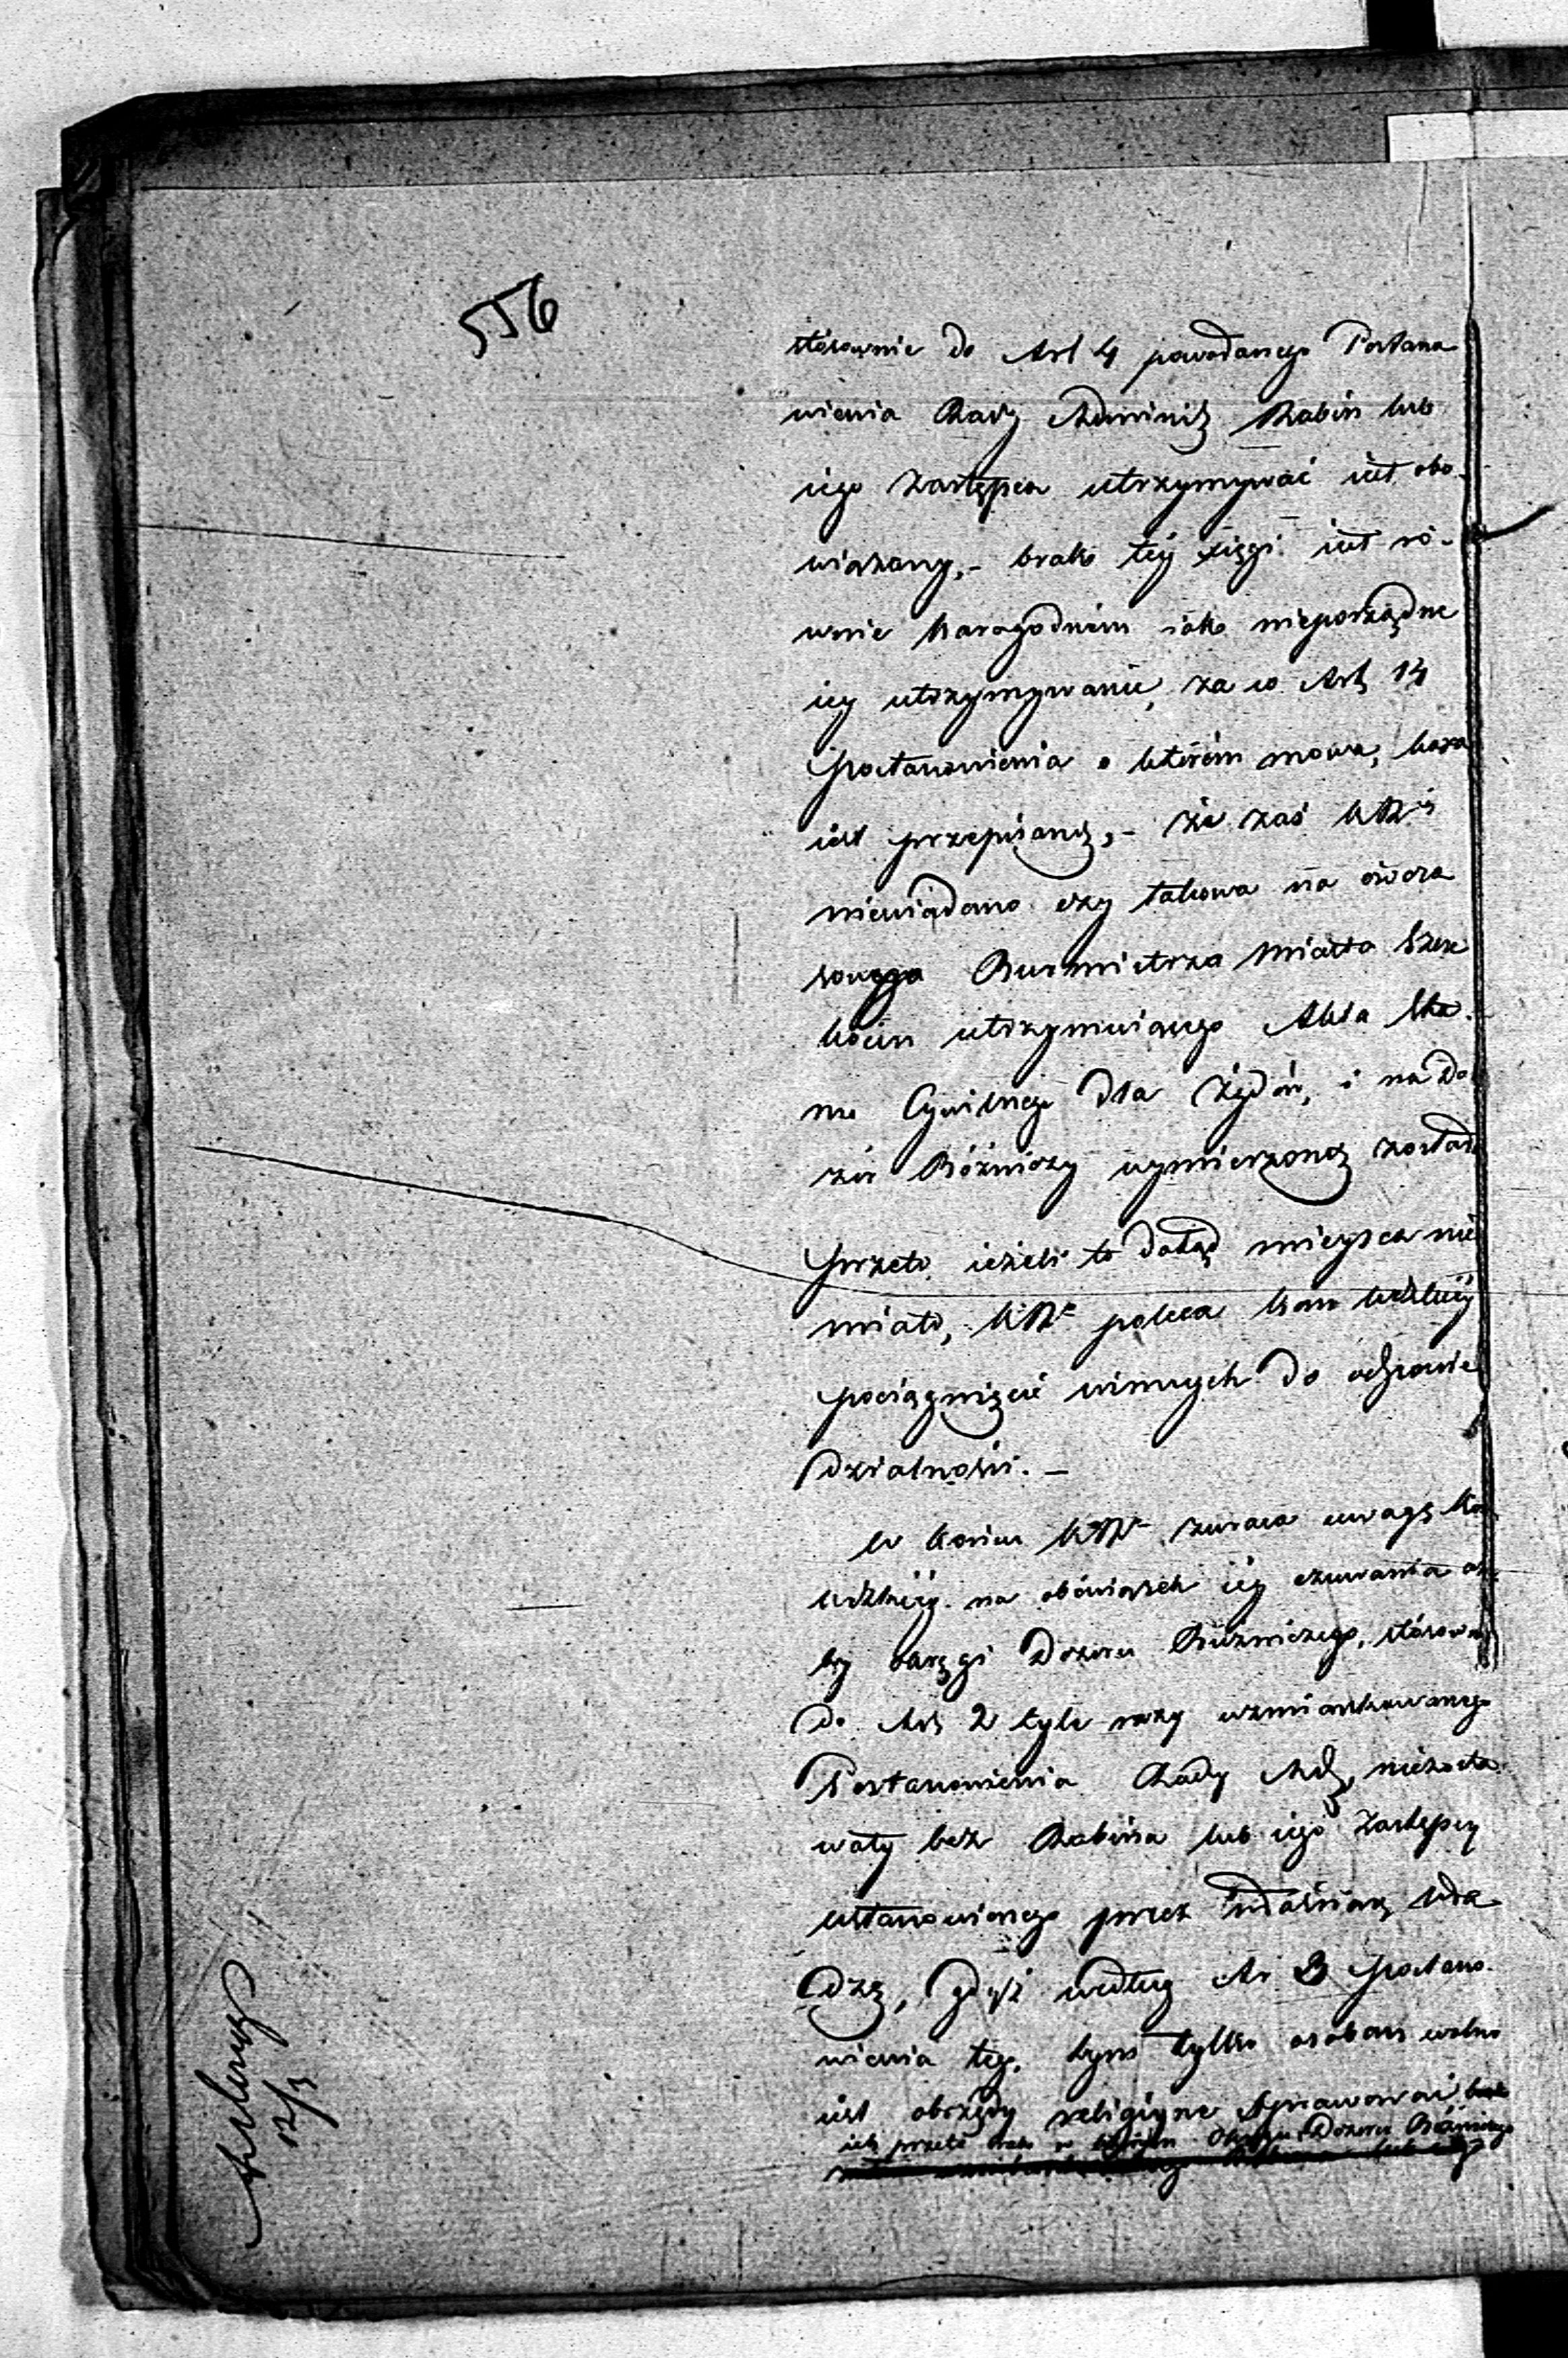 556
stósownie do Art 4 powołanego Postana
wienia Rady Administ Rabin lub
iego zastępca utrzymywać iest obo-
wiązany,- brak téy xięgi iest ró-
wnie karogodném iak nieporządne
iey utrzymywanie, za co Art 14
Postanowienia o którém mowa, kara
iest przepisaną,- że zaś
niewiadomo czy takowa na ówcza
sowego Burmistrza miasta Szcze
kocin utrzymuiącego Akta Sta-
nu Cywilnego dla Żydów, i na Do
zór Bóżniczy wymierzoną została
przeto ieżeli to dotąd mieysca nie
miało, poleca Kom
pociągnięcie winnych do odpowie
dzialności. -
W końcu zwraca uwagę Ko
na obowiązek iéy czuwania a
by okręgi Dozoru Bóżniczego, stósownie
do Art 2 tyle razy wzmiankowanego
Postanowienia Rady Ad, niezosta
wały bez Rabina lub iego zastępcy
ustanowionego przez właściwą wła
dzę, gdyż według Ar 3 Postano-
wienia teg, tym tylko osobom wolno
iest obrzędy religiyne sprawować
przeto w Okręgu Dozoru Bóżniczego